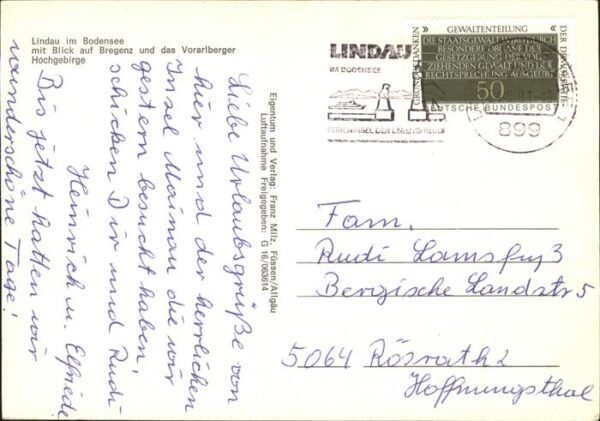 Lindau im Bodensee
mit Blick auf Bregenz und das Vorarlberger
Hochgebirge
Liebe Urlaubsgrüße von
hier und der herrlichen
Insel Mainau die wir
gestern besucht haben,
schicken Dir und Rudi
Heinrich u. Elfriede
Bis jetzt hatten wir
wunderschöne Tage!
Eigentum und Verlag: Franz Milz, Füssen/Allgäu
Luftaufnahme Freigegeben: G 16/063614
LINDAU
IM BODENSEE
FERIENINSEL DER LEBENSFREUDE
899
GRUNDGEDANKEN
GEWALTENTEILUNG
DER DEMOKRATIE
DIE STAATSGEWALT WIRD DURCH
BESONDERE ORGANE DER
GESETZGEBUNG DER VOLL-
ZIEHENDEN GEWALT UND DER
RECHTSPRECHUNG AUSGEÜBT
50
DEUTSCHE BUNDESPOST
Fam.
Rudi
Bergische Landstr 5
5064 Rösrath 2
Hoffnungsthal